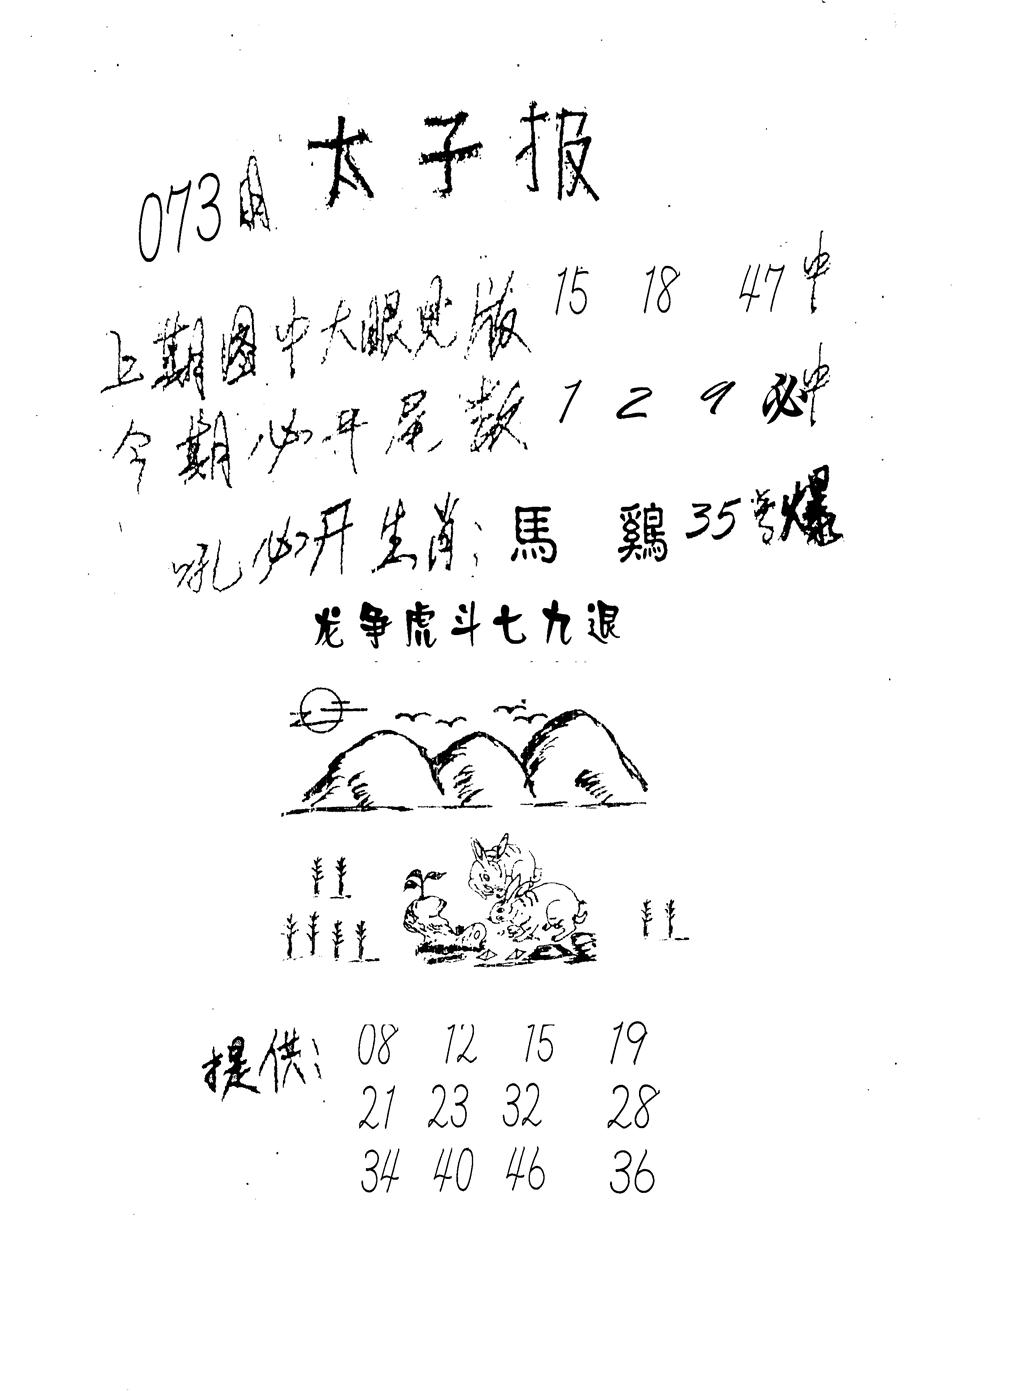 太子报
073期
上期图中大眼见版 15 18 47中
今期必开尾数 1 2 9 必中
吼必开生肖: 馬 鷄 35号爆
龙争虎斗七九退
提供: 08 12 15 19
21 23 32 28
34 40 46 36